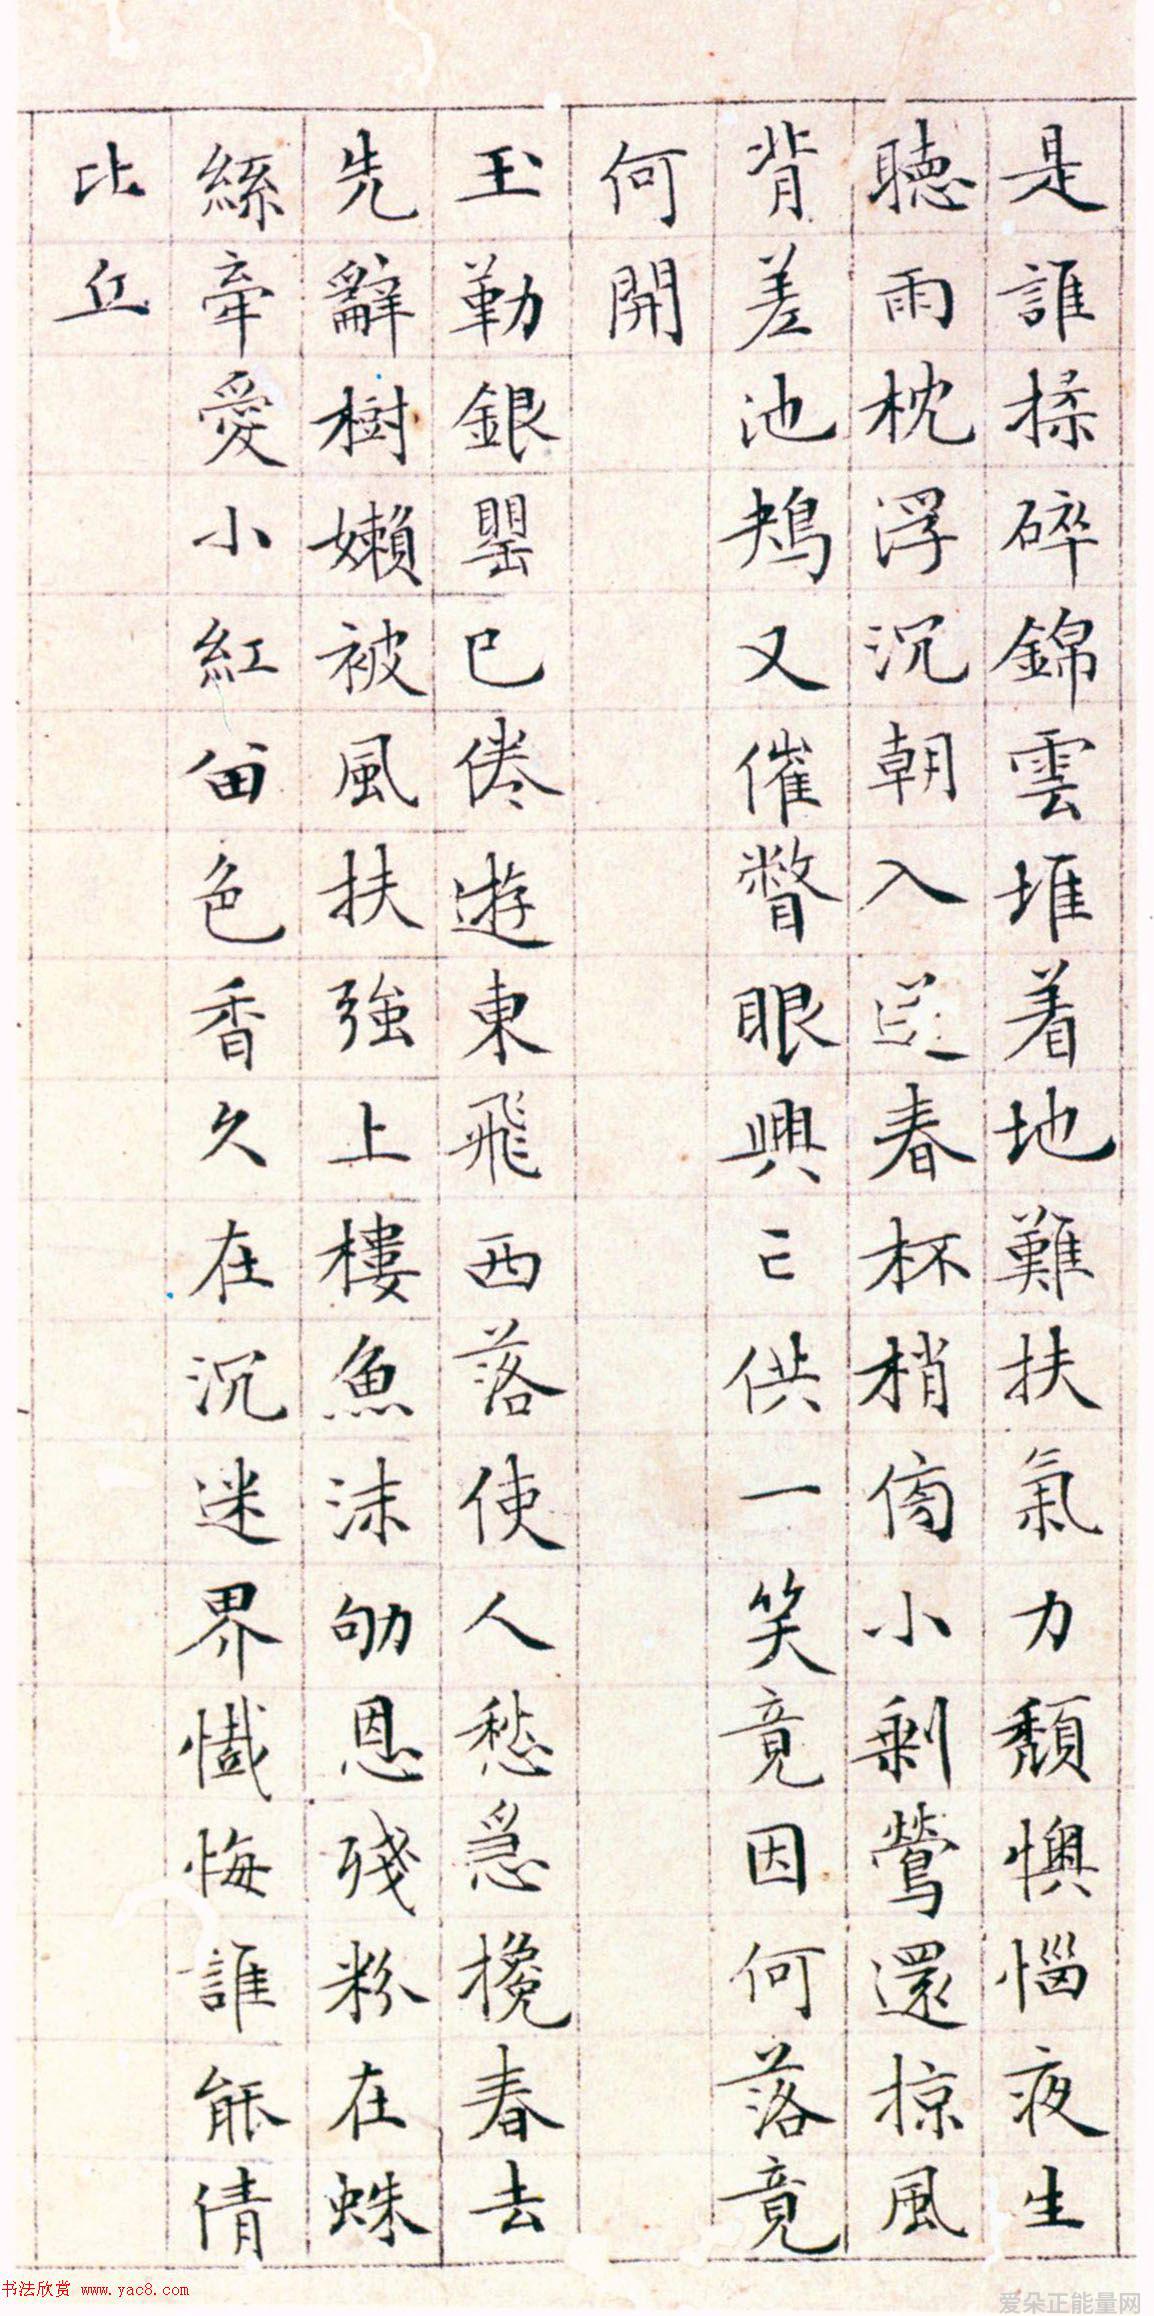 是誰揉碎錦雲堆着地難扶氣力頹懊惱夜生
聽雨枕浮沉朝入送春杯梢傍小剩鶯還掠風
背差池鳺又催瞥眼興亡供一笑竟因何落竟
何開
玉勒銀罌已倦遊東飛西落使人愁急攙春去
先辭樹嬾被風扶強上樓魚沫劬恩殘粉在蛛
絲牽愛小紅留色香久在沉迷界懺悔誰能倩
比丘
书法欣赏 www.yac8.com
爱朵正能量网